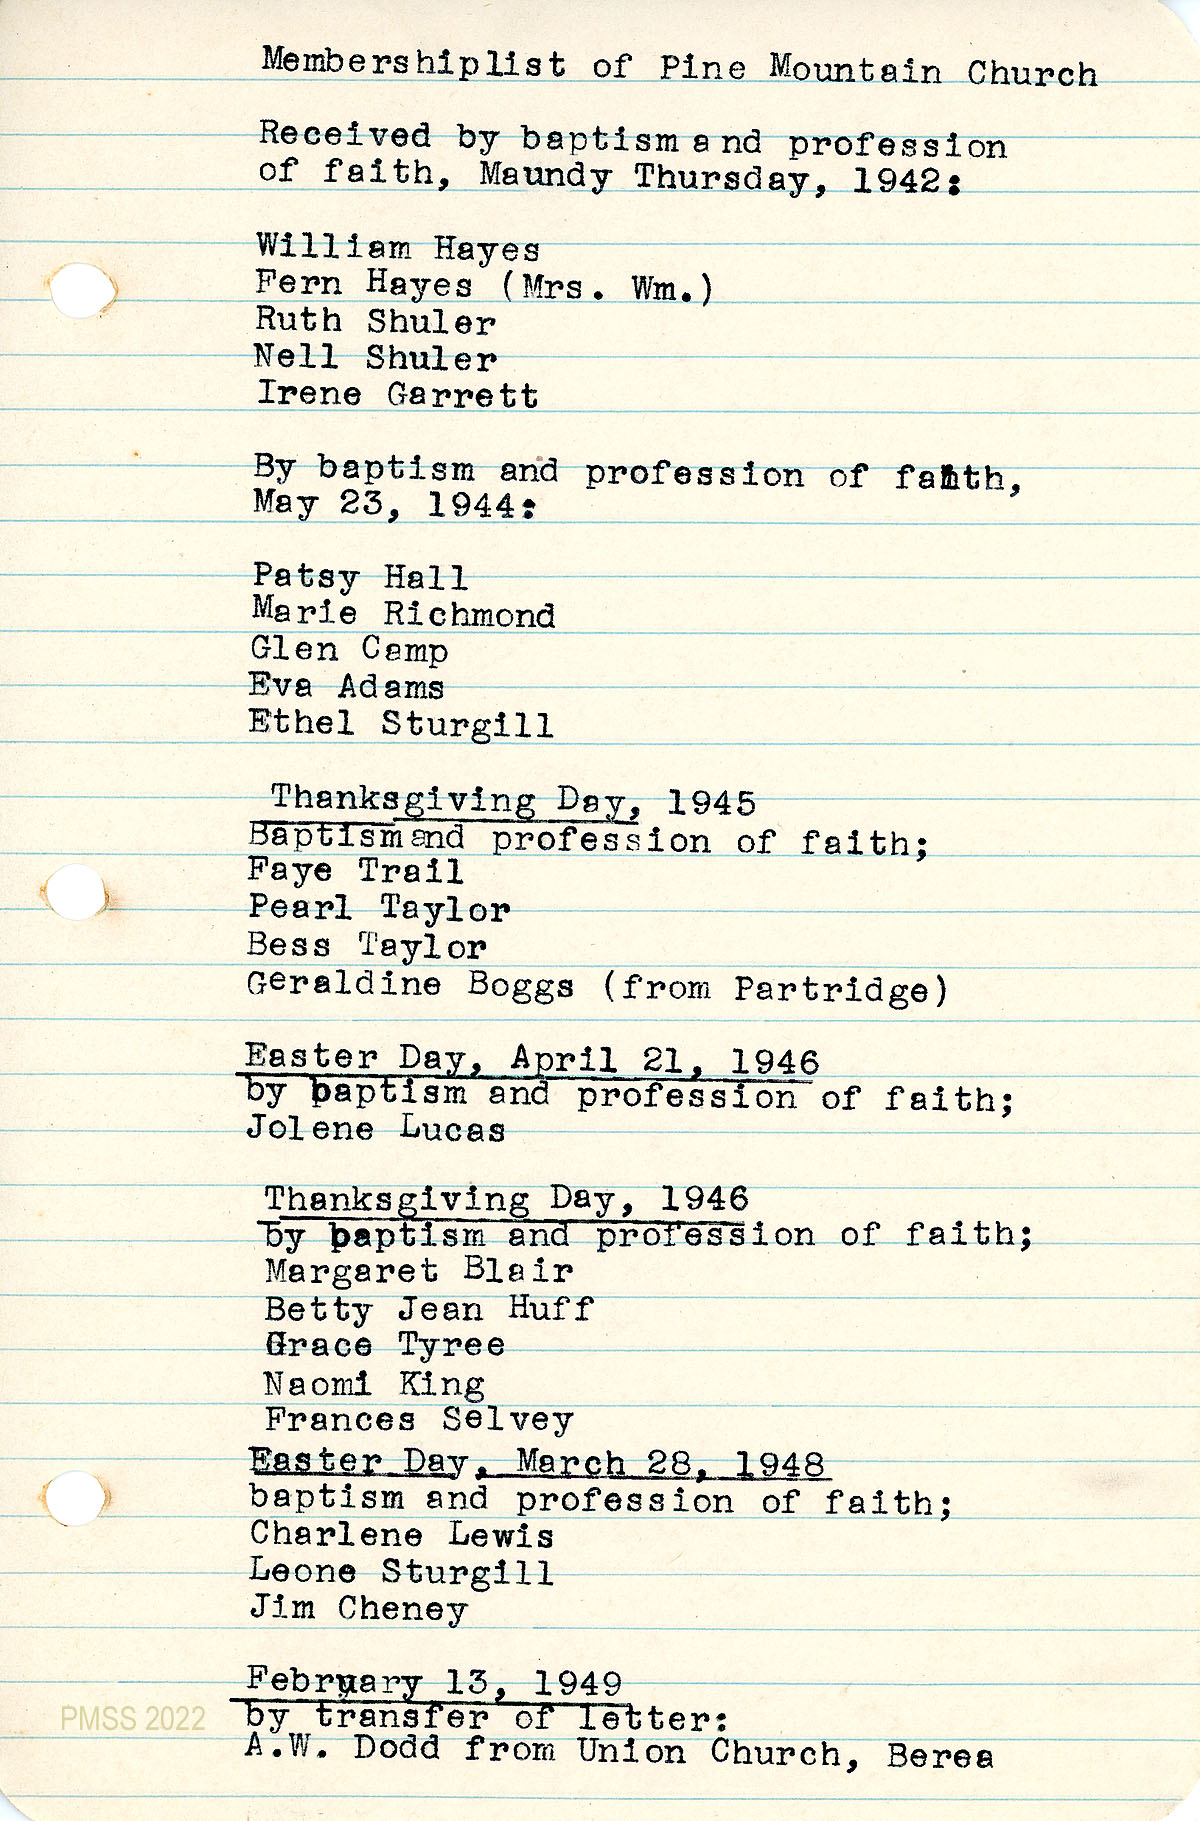 Membershiplist of Pine Mountain Church
Received by baptism and profession
of faith, Maundy Thursday, 1942:
William Hayes
Fern Hayes (Mrs. Wm.)
Ruth Shuler
Nell Shuler
Irene Garrett
By baptism and profession of faith,
May 23, 1944:
Patsy Hall
Marie Richmond
Glen Camp
Eva Adams
Ethel Sturgill
Thanksgiving Day, 1945
Baptism and profession of faith;
Faye Trail
Pearl Taylor
Bess Taylor
Geraldine Boggs (from Partridge)
Easter Day, April 21, 1946
by baptism and profession of faith;
Jolene Lucas
Thanksgiving Day, 1946
by baptism and profession of faith;
Margaret Blair
Betty Jean Huff
Grace Tyree
Naomi King
Frances Selvey
Easter Day, March 28, 1948
baptism and profession of faith;
Charlene Lewis
Leone Sturgill
Jim Cheney
February 13, 1949
by transfer of letter:
A.W. Dodd from Union Church, Berea
PMSS 2022